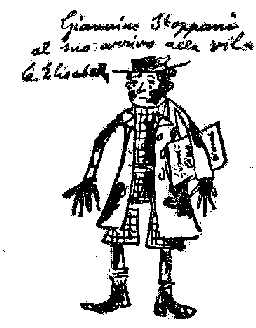 Giannino Stoppani
al suo arrivo alla villa
Elisabetta